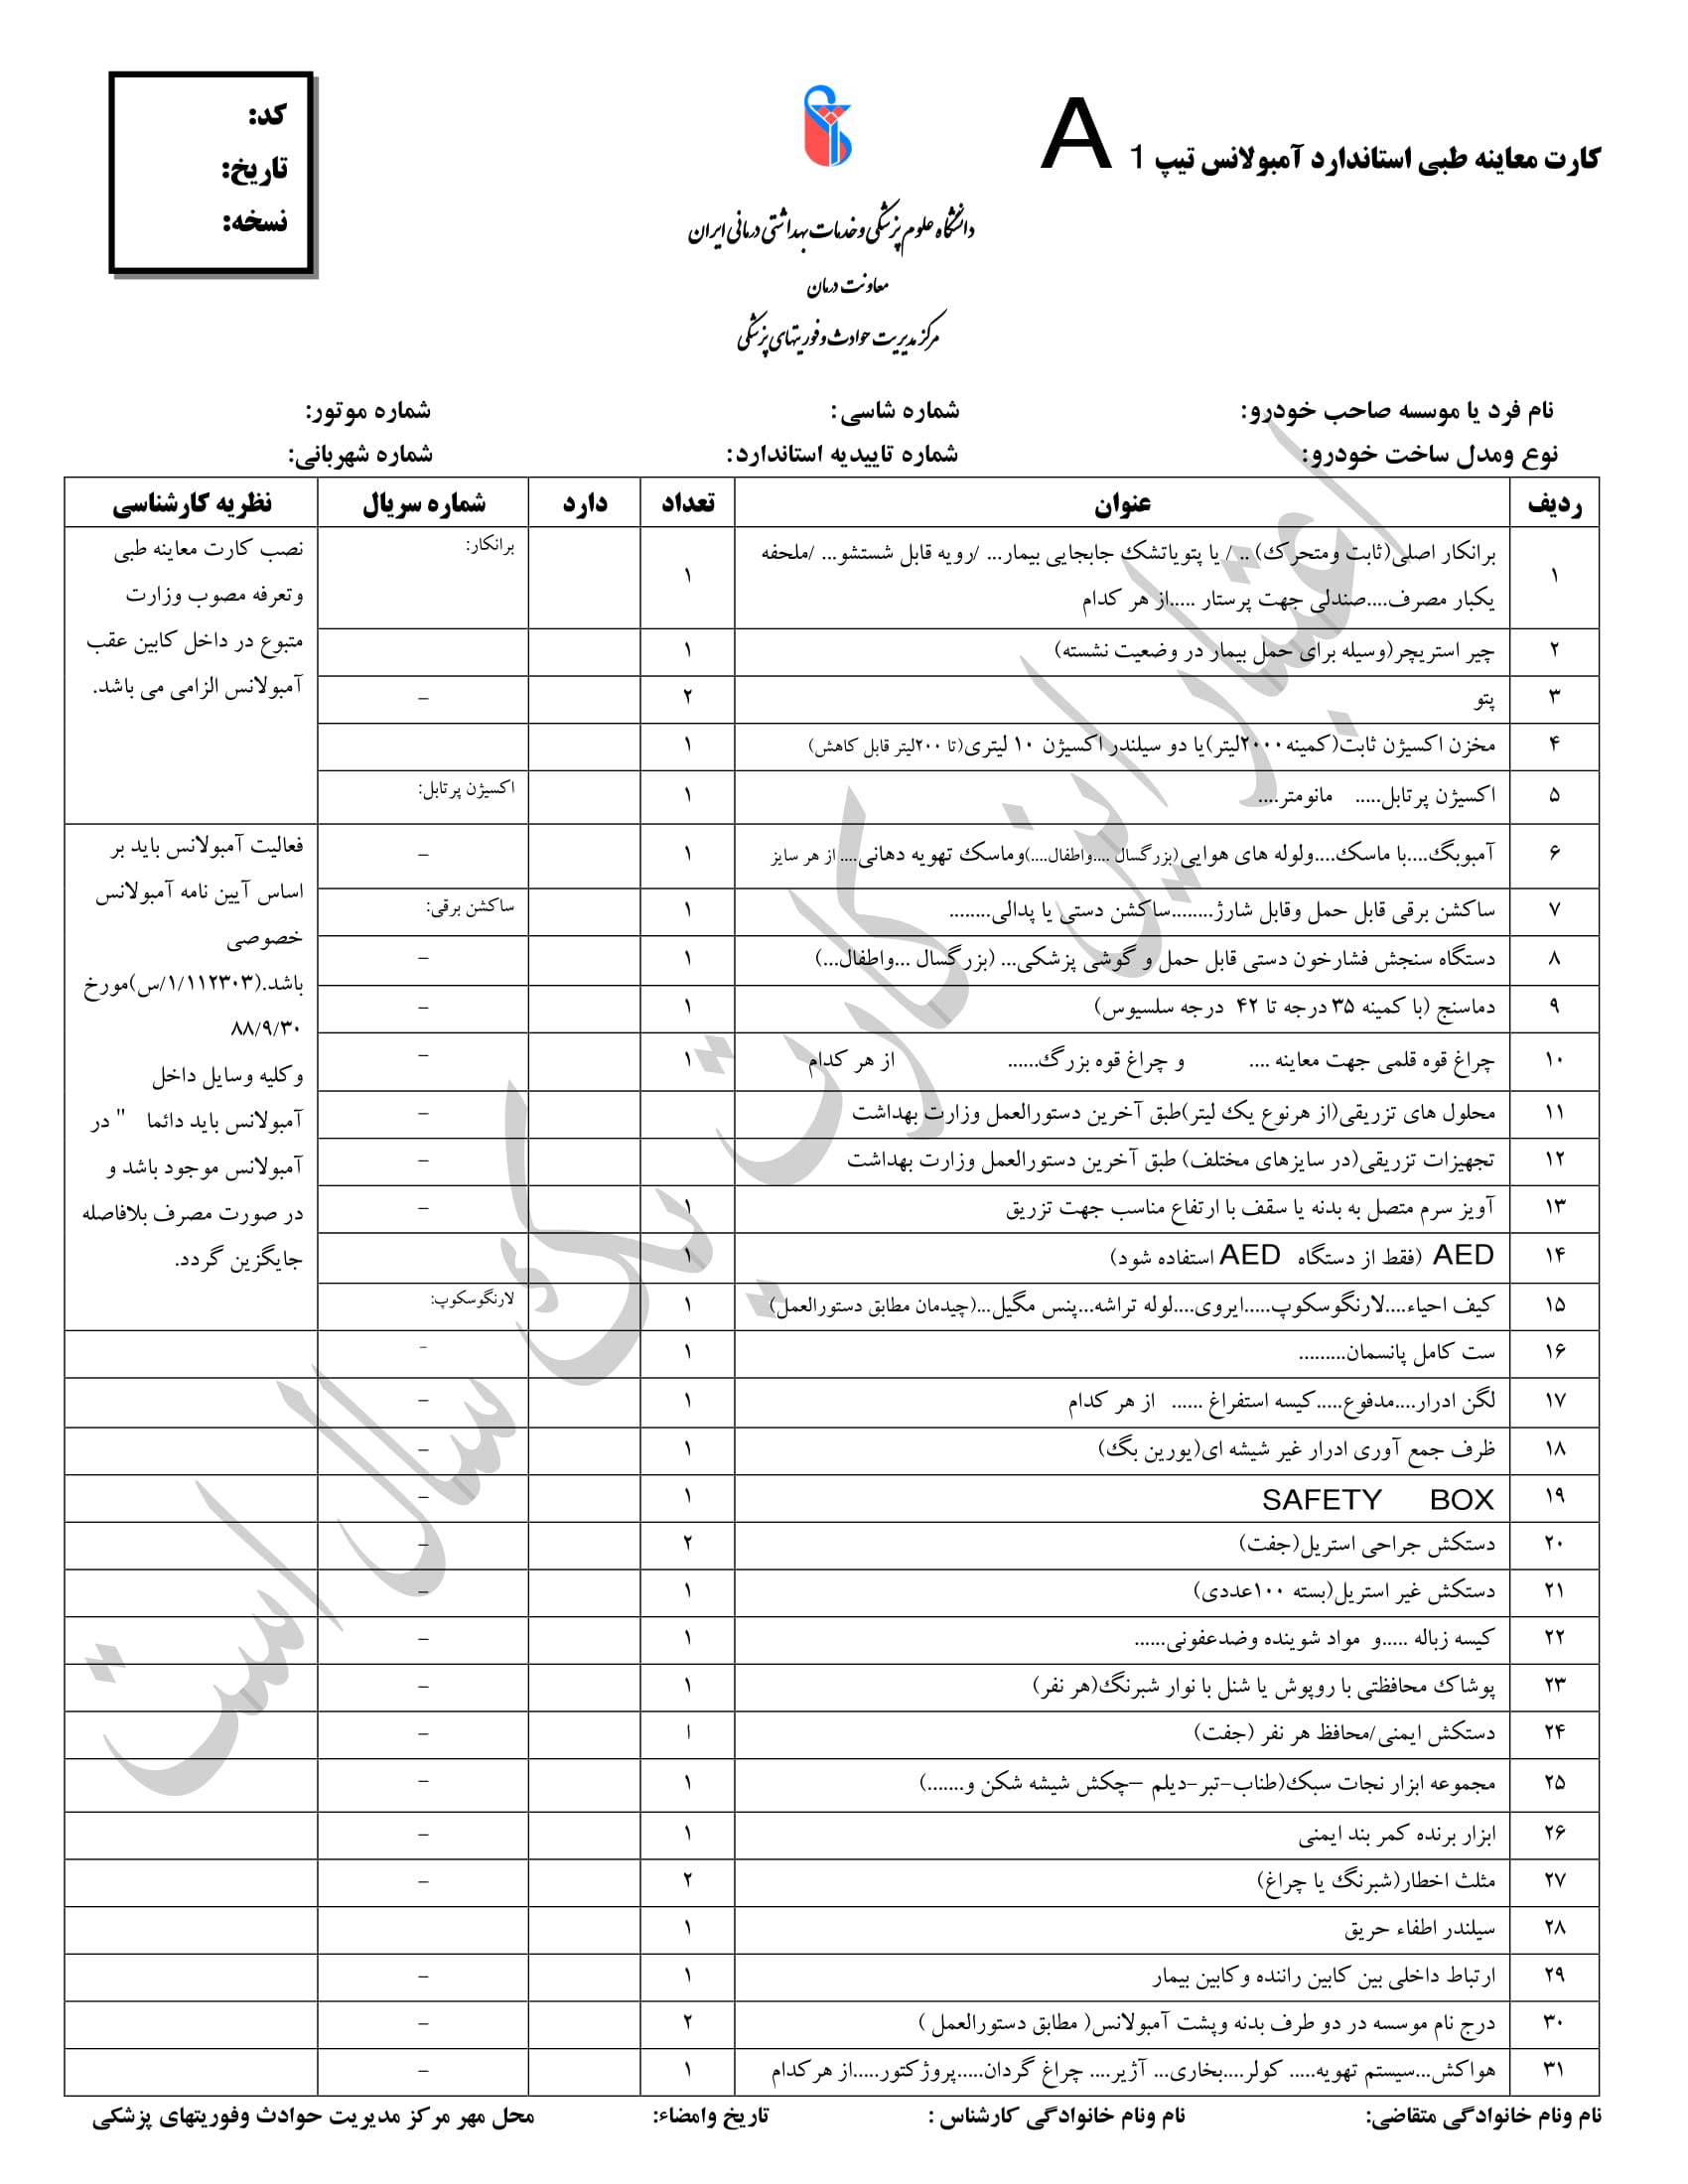 کارت معاینه طبی استاندارد آمبولانس تیپ 1 A
کد:
تاریخ:
نسخه:
دانشگاه علوم پزشکی و خدمات بهداشتی درمانی ایران
معاونت درمان
مرکز مدیریت حوادث و فوریتهای پزشکی
نام فرد یا موسسه صاحب خودرو: شماره شاسی: شماره موتور:
نوع ومدل ساخت خودرو: شماره تاییدیه استاندارد: شماره شهربانی:
ردیف عنوان تعداد دارد شماره سریال نظریه کارشناسی
۱ برانکار اصلی(ثابت ومتحرک) .. / یا پتویاتشک جابجایی بیمار... /رویه قابل شستشو... /ملحفه
یکبار مصرف....صندلی جهت پرستار .....از هر کدام ۱ برانکار:
۲ چیر استریچر(وسیله برای حمل بیمار در وضعیت نشسته) ۱
۳ پتو ۲ –
۴ مخزن اکسیژن ثابت(کمینه۲۰۰۰لیتر)یا دو سیلندر اکسیژن ۱۰ لیتری(تا ۲۰۰لیتر قابل کاهش) ۱
۵ اکسیژن پرتابل..... مانومتر.... ۱ اکسیژن پرتابل:
نصب کارت معاینه طبی
وتعرفه مصوب وزارت
متبوع در داخل کابین عقب
آمبولانس الزامی می باشد.
۶ آمبوبگ....با ماسک....ولوله های هوایی(بزرگسال ....واطفال....)وماسک تهویه دهانی.... از هر سایز ۱ –
۷ ساکشن برقی قابل حمل وقابل شارژ........ساکشن دستی یا پدالی........ ۱ ساکشن برقی:
۸ دستگاه سنجش فشارخون دستی قابل حمل و گوشی پزشکی... (بزرگسال ...واطفال...) ۱ –
۹ دماسنج (با کمینه ۳۵ درجه تا ۴۲ درجه سلسیوس) ۱ –
۱۰ چراغ قوه قلمی جهت معاینه .... و چراغ قوه بزرگ...... از هر کدام ۱ –
۱۱ محلول های تزریقی(از هرنوع یک لیتر)طبق آخرین دستورالعمل وزارت بهداشت –
۱۲ تجهیزات تزریقی(در سایزهای مختلف) طبق آخرین دستورالعمل وزارت بهداشت –
۱۳ آویز سرم متصل به بدنه یا سقف با ارتفاع مناسب جهت تزریق ۱ –
۱۴ AED (فقط از دستگاه AED استفاده شود) ۱
۱۵ کیف احیاء....لارنگوسکوپ.....ایروی....لوله تراشه...پنس مگیل...(چیدمان مطابق دستورالعمل) ۱ لارنگوسکوپ:
فعالیت آمبولانس باید بر
اساس آیین نامه آمبولانس
خصوصی
باشد.(۱/۱۱۲۳۰۳/س)مورخ
۸۸/۹/۳۰
وکلیه وسایل داخل
آمبولانس باید دائما " در
آمبولانس موجود باشد و
در صورت مصرف بلافاصله
جایگزین گردد.
۱۶ ست کامل پانسمان......... ۱ –
۱۷ لگن ادرار....مدفوع.....کیسه استفراغ ...... از هر کدام ۱ –
۱۸ ظرف جمع آوری ادرار غیر شیشه ای(یورین بگ) ۱ –
۱۹ SAFETY BOX ۱ –
۲۰ دستکش جراحی استریل(جفت) ۲ –
۲۱ دستکش غیر استریل(بسته ۱۰۰عددی) ۱ –
۲۲ کیسه زباله .....و مواد شوینده وضدعفونی...... ۱ –
۲۳ پوشاک محافظتی با روپوش یا شنل با نوار شبرنگ(هر نفر) ۱ –
۲۴ دستکش ایمنی/محافظ هر نفر (جفت) ا –
۲۵ مجموعه ابزار نجات سبک(طناب-تبر-دیلم –چکش شیشه شکن و.......) ۱ –
۲۶ ابزار برنده کمر بند ایمنی ۱ –
۲۷ مثلث اخطار(شبرنگ یا چراغ) ۲ –
۲۸ سیلندر اطفاء حریق ۱
۲۹ ارتباط داخلی بین کابین راننده وکابین بیمار ۱ –
۳۰ درج نام موسسه در دو طرف بدنه وپشت آمبولانس( مطابق دستورالعمل ) ۲ –
۳۱ هواکش...سیستم تهویه..... کولر....بخاری... آژیر.... چراغ گردان.....پروژکتور.....از هرکدام ۱ –
نام ونام خانوادگی متقاضی: نام ونام خانوادگی کارشناس : تاریخ وامضاء: محل مهر مرکز مدیریت حوادث وفوریتهای پزشکی
اعتبار این کارت یک سال است